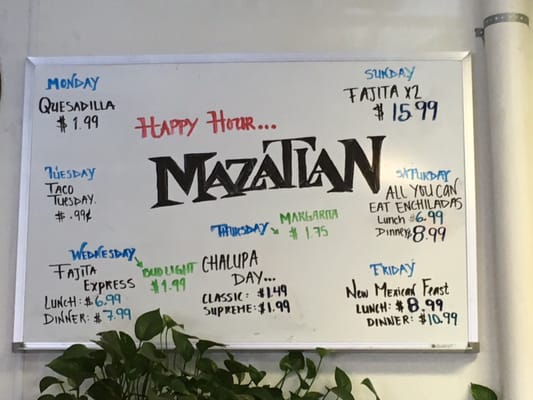 MONDAY
QUESADILLA
$ 1.99
HAPPY HOUR...
MAZATLAN
SUNDAY
FAJITA X2
$ 15.99
TUESDAY
TACO
TUESDAY.
$ .99¢
SATURDAY
ALL YOU CAN
EAT ENCHILADAS
Lunch $6.99
Dinner $8.99
WEDNESDAY
FAJITA
EXPRESS
LUNCH: $6.99
DINNER: $7.99
BUD LIGHT
$1.99
THURSDAY
MARGARITA
$ 1.75
CHALUPA
DAY...
CLASSIC: $1.49
SUPREME: $1.99
FRIDAY
New Mexican Feast
LUNCH: $8.99
DINNER: $10.99